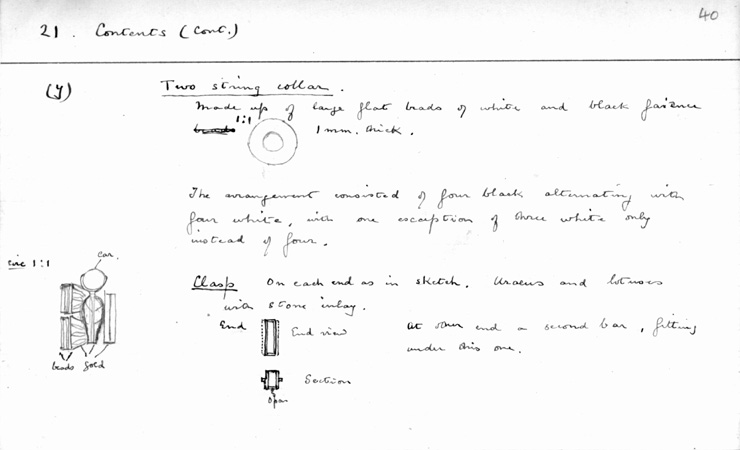 40
21. Contents (Cont.)
(y)
Two string collar.
Made up of large flat beads of white and black faience
beads 1:1 1 mm. thick.
The arrangement consisted of four black alternating with
four white, with one exception of three white only
instead of four.
circ 1:1
car.
beads gold
Clasp On each end as in sketch. Uraeus and lotuses
with stone inlay.
End End view At other end a second bar, fitting
under this one.
Section
open